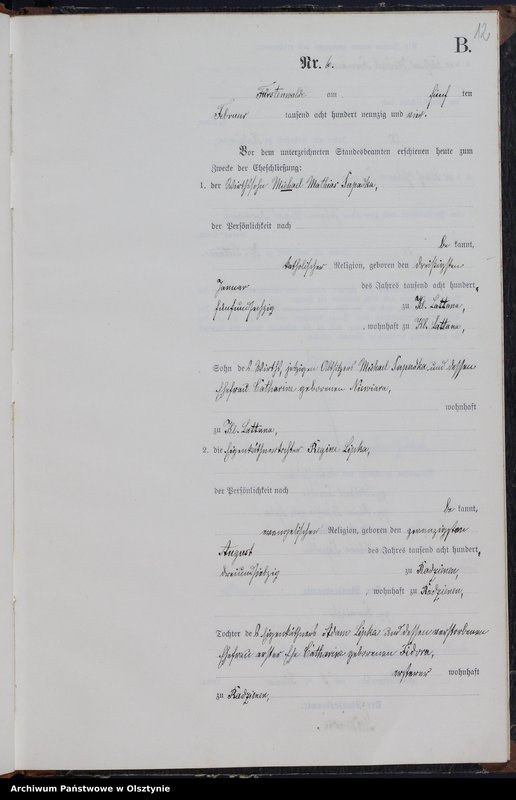 12
B.
Nr. 6.
Fürstenwalde am fünf ten
Februar tausend acht hundert neunzig und vier.
Vor dem unterzeichneten Standesbeamten erschienen heute zum
Zwecke der Eheschließung:
1. der Wirthssohn Michael Mathias
der Persönlichkeit nach
be kannt,
katholischer Religion, geboren den dreißigsten
Januar des Jahres tausend acht hundert
fünfundsechzig zu Kl. Lattana,
, wohnhaft zu Kl. Lattana,
Sohn des Wirths, jetzigen Altsitzers Michael und dessen
Ehefrau Catharina geborenen
wohnhaft
zu Kl. Lattana,
2. die Eigenkäthnertochter Regine Lipka,
der Persönlichkeit nach
be kannt,
evangelischer Religion, geboren den zwanzigsten
August des Jahres tausend acht hundert
dreiundsiebzig zu Radzienen,
, wohnhaft zu Radzienen,
Tochter des Eigenkäthners Adam Lipka und dessen verstorbenen
Ehefrau erster Ehe Catharina geborenen Fidorra,
ersterer wohnhaft
zu Radzienen,
Archiwum Państwowe w Olsztynie